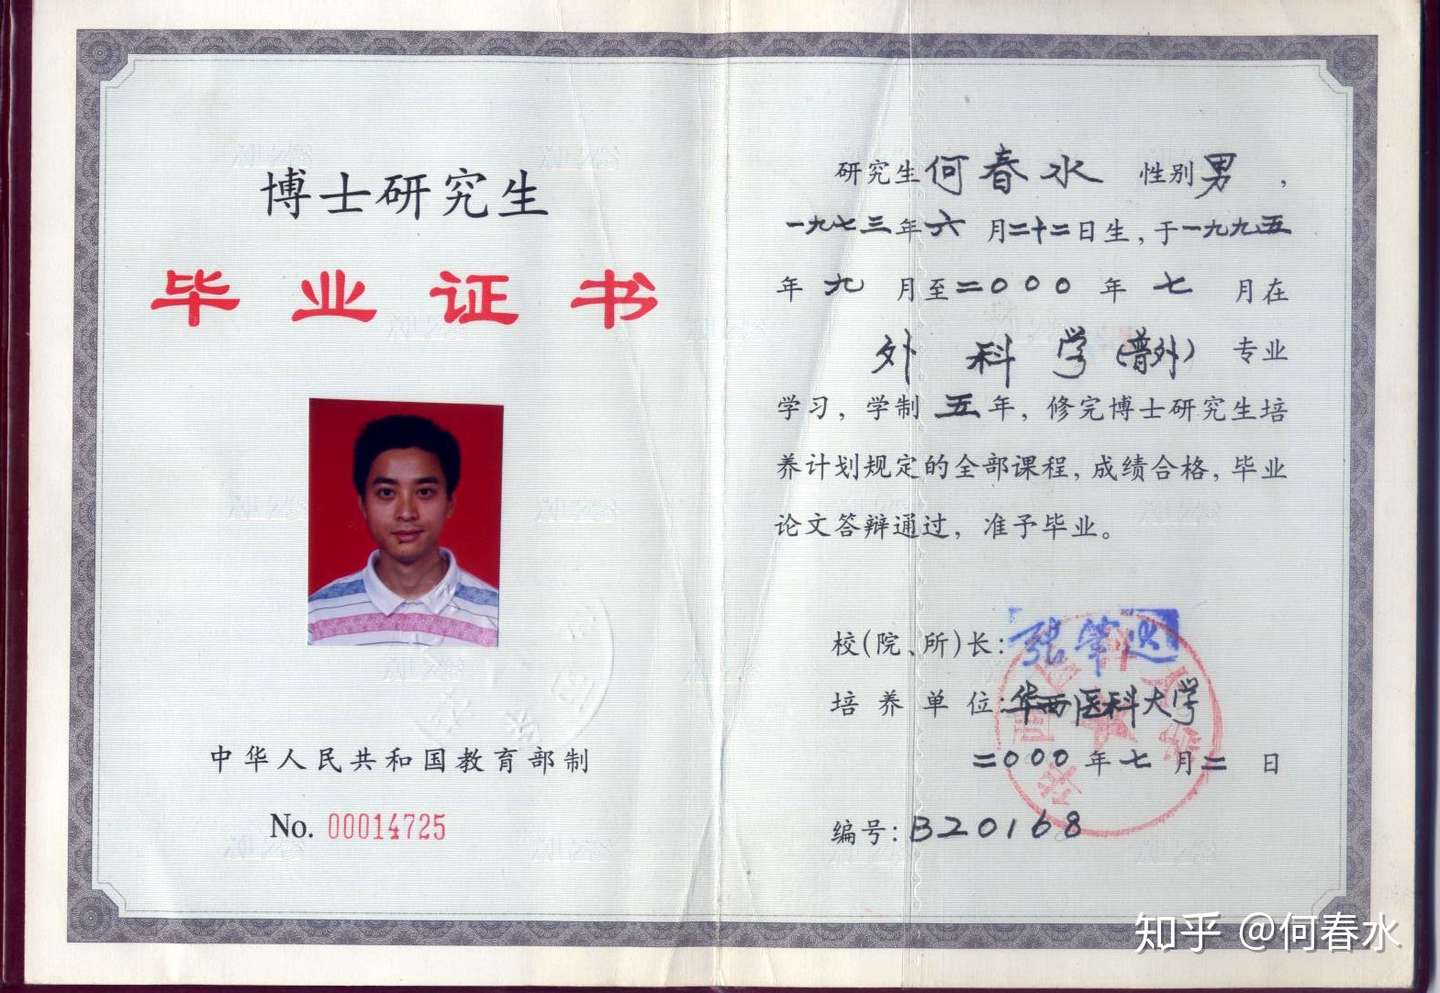 博士研究生
毕业证书
中华人民共和国教育部制
No. 00014725
研究生何春水 性别男 ，
一九七三年六月二十二日生，于一九九五
年九月至二000年七月在
外科学(普外) 专业
学习，学制五年，修完博士研究生培
养计划规定的全部课程，成绩合格，毕业
论文答辩通过，准予毕业。
校(院、所)长：张肇达
培养单位：华西医科大学
二000年七月二日
编号：B20168
知乎 @何春水